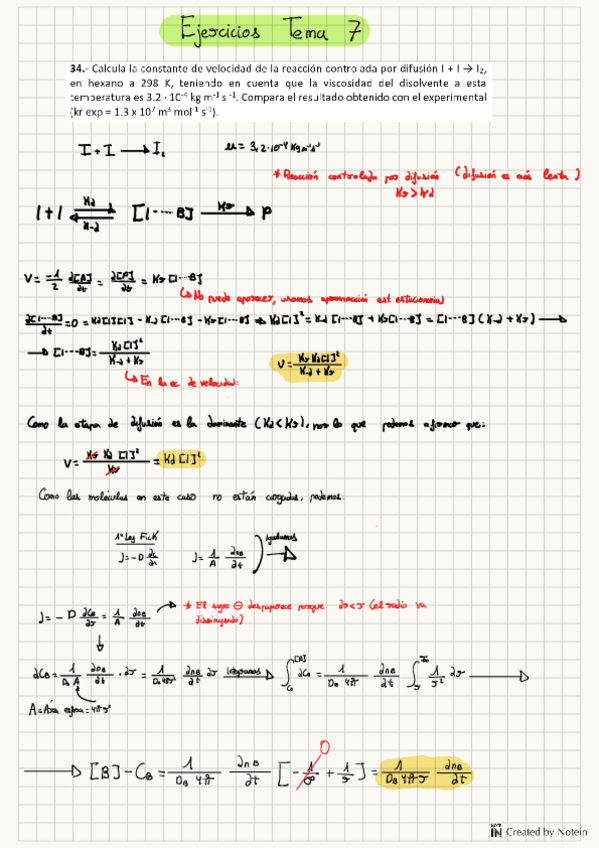 Ejercicios Tema 7
34.- Calcula la constante de velocidad de la reacción controlada por difusión I + I → I₂,
en hexano a 298 K, teniendo en cuenta que la viscosidad del disolvente a esta
temperatura es 3.2 · 10⁻⁴ kg m⁻¹ s⁻¹. Compara el resultado obtenido con el experimental
(kr exp = 1.3 x 10⁷ m³ mol⁻¹ s⁻¹).
I + I → I₂
* Reacción controlada por difusión (difusión es más lenta)
Kr > Kd
I + I ⇌ [I···B] → P
Kd K-d Kr
V = -1/2 ∂[A]/∂t = ∂[P]/∂t = Kr [I···B]
↳ No puede aparecer, usamos aproximación est estacionario
∂[I···B]/∂t = 0 = Kd[I][I] - K-d [I···B] - Kr[I···B] ⇒ Kd[I]² = K-d [I···B] + Kr[I···B] = [I···B] (K-d + Kr) →
→ [I···B] = Kd[I]² / K-d + Kr
V = Kr Kd[I]² / K-d + Kr
↳ En la ec de velocidad:
Como la etapa de difusión es la dominante (Kd < Kr), por lo que podemos afirmar que:
V = Kr Kd [I]² / Kr = Kd [I]²
Como las moléculas en este caso no están cargadas, podemos:
1ª Ley Fick
J = -D
J = 1/A ∂nB/∂t
igualamos
J = -D ∂CB/∂r = 1/A ∂nB/∂t
* El signo ⊖ desaparece porque (el radio va
disminuyendo)
∂CB = 1/DB A ∂nB/∂t · ∂r = 1/DB 4πr² ∂nB/∂t ∂r integramos → ∫ ∂CB = 1/DB 4π ∂nB/∂t ∫ 1/r² ∂r →
A = Área esfera = 4πr²
→ [B] - CB = 1/DB 4π ∂nB/∂t [-1/∞ + 1/r] = 1/DB 4πr ∂nB/∂t
0
Created by Notein